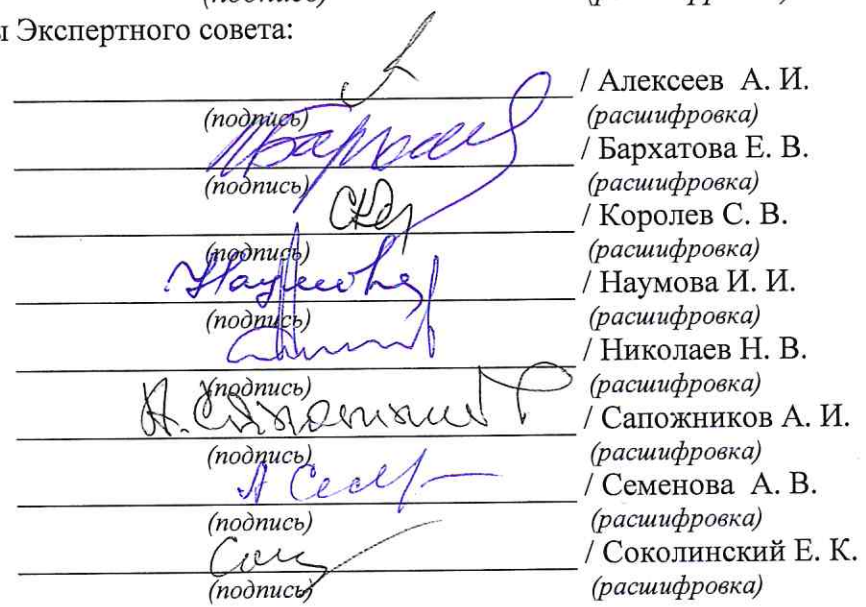 (подпись) (расшифровка)
Экспертного совета:
/ Алексеев А. И.
(подпись) (расшифровка)
/ Бархатова Е. В.
(подпись) (расшифровка)
/ Королев С. В.
(подпись) (расшифровка)
Наумова / Наумова И. И.
(подпись) (расшифровка)
/ Николаев Н. В.
(подпись) (расшифровка)
/ Сапожников А. И.
(подпись) (расшифровка)
/ Семенова А. В.
(подпись) (расшифровка)
/ Соколинский Е. К.
(подпись) (расшифровка)